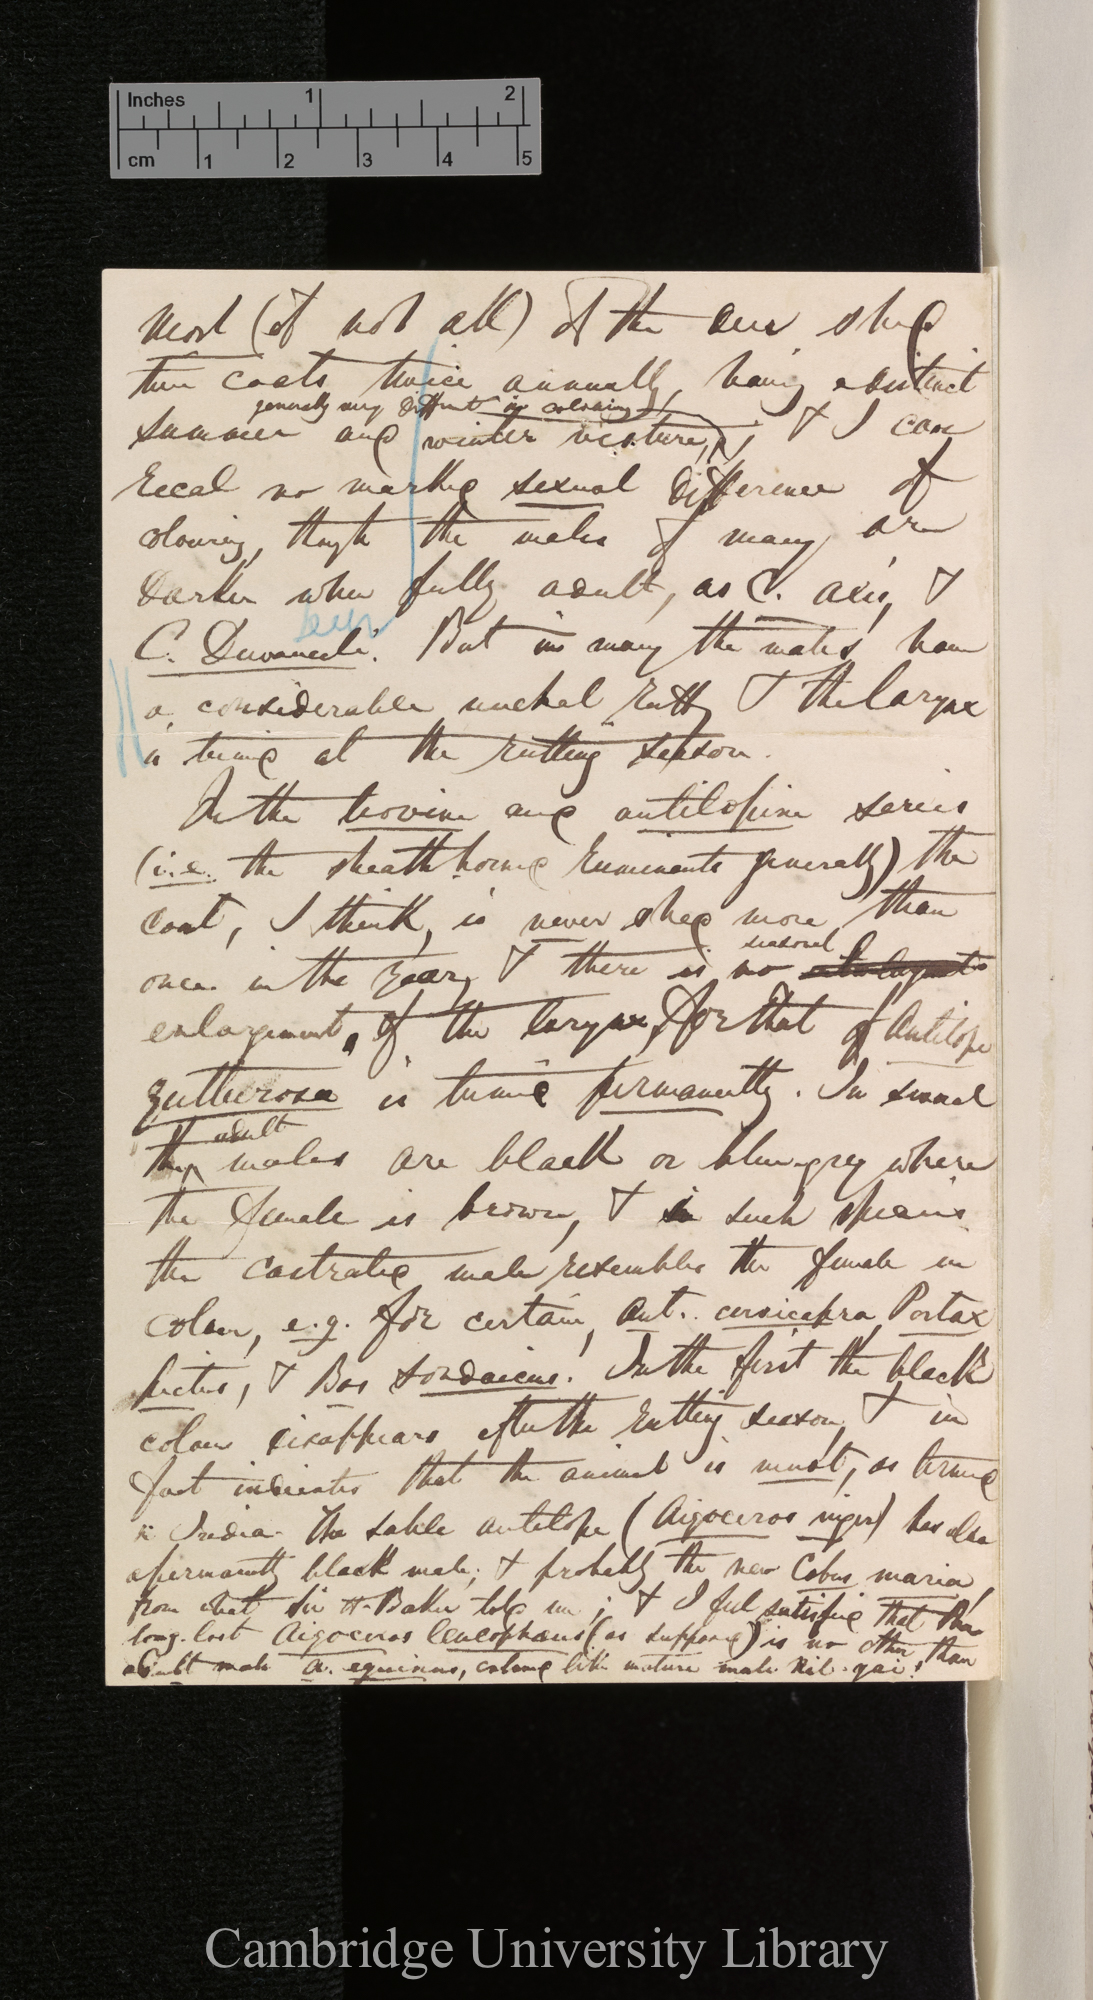 Inches 1 2
cm 1 2 3 4 5
most (if not all) of the deer shed
their coats twice annually, having a distinct
generally very different in colouring
summer and winter vesture, ; & I can
recal no marked sexual difference of
colouring, though the males of many are
darker when fully adult, as C. axis, &
deer
C. Duvaucelii. But in many the males have
a considerable nuchal ruff, & the larynx
is tumid at the rutting season.
In the bovine and antilopine series
(i.e. the sheath-horned ruminants generally) the
coat, I think, is never shed more than
seasonal
once in the year, & there is no
enlargement, of the larynx, for that of Antilope
gutturosa is tumid permanently. In several
adult
the males are black or blue-grey where
the female is brown, & in such species
the castrated male resembles the female in
colour, e.g. for certain, Ant. cervicapra, Portax
pictus, & Bos sondaicus. In the first the black
colour disappears after the rutting season, & in
fact indicates that the animal is must, as termed
in India. The sable antelope (Aigoceros niger) has also
a permanently black male; & probably the new Cobus maria,
from what Sir H. Baker told me; & I feel satisfied that the
long-lost Aigoceros leucophæus (as supposed) is no other than
adult male A. equinus, colored like mature male nil-gai!
Cambridge University Library